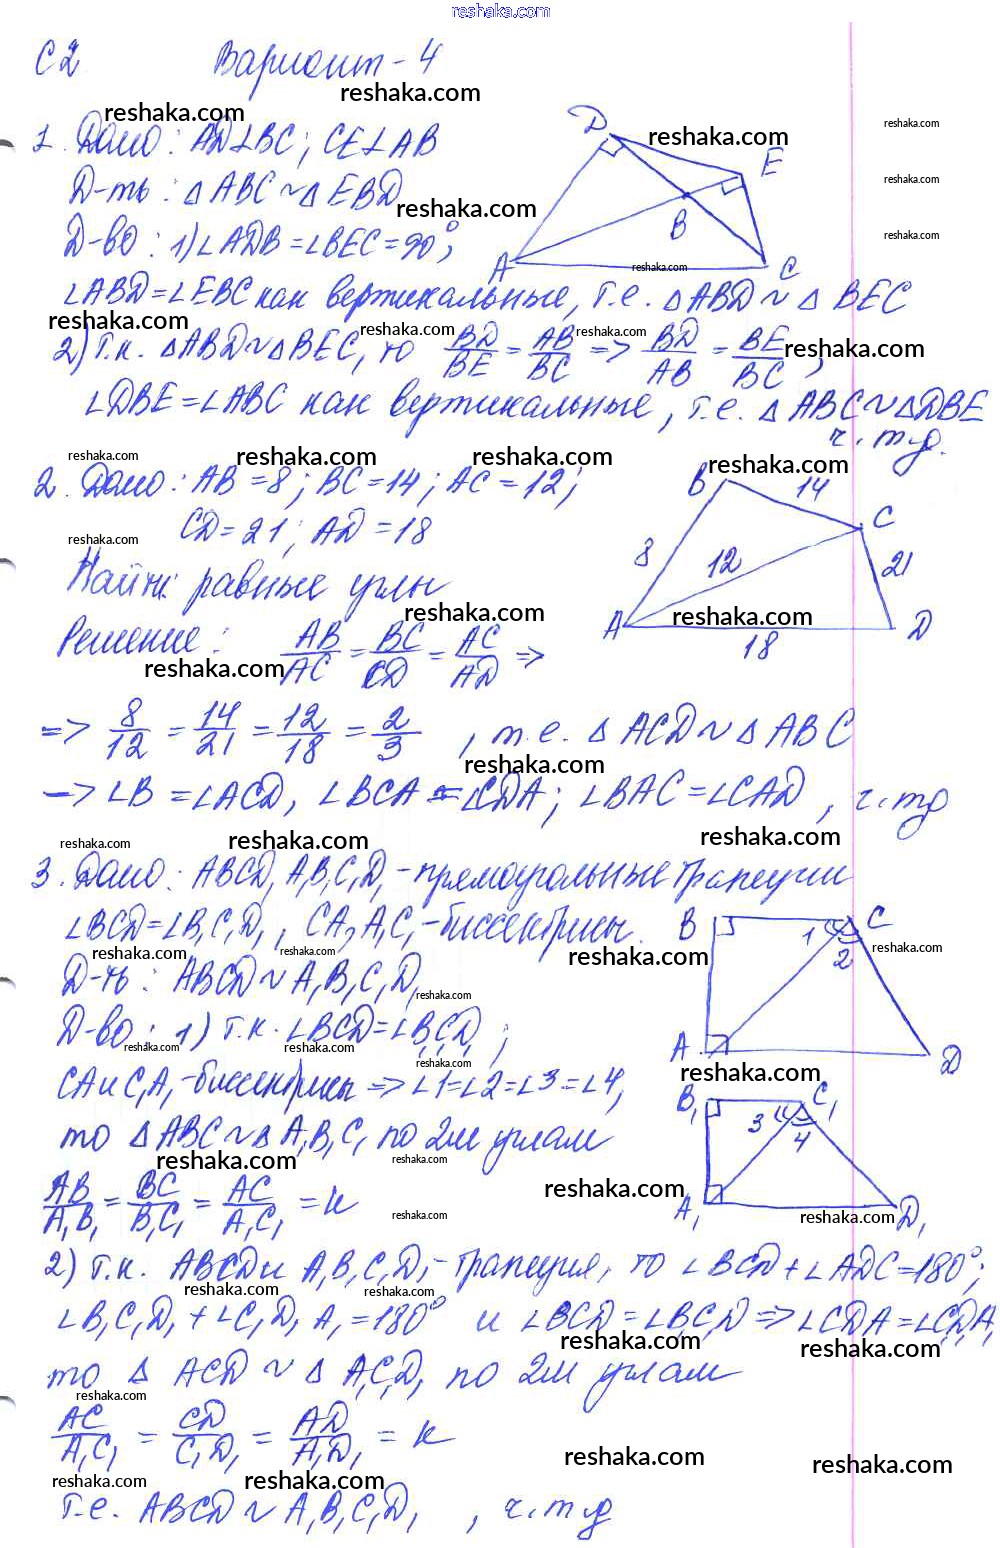 reshaka.com
С2 Вариант-4
1. Дано: AD⊥BC; CE⊥AB
Д-ть: △ABC ~ △EBD
Д-во: 1) ∠ADB = ∠BEC = 90°;
∠ABD = ∠EBC как вертикальные, т.е. △ABD ~ △BEC
2) т.к. △ABD ~ △BEC, то BD/BE = AB/BC => BD/AB = BE/BC,
∠DBE = ∠ABC как вертикальные, т.е. △ABC ~ △DBE
ч.т.д.
D
E
B
A
C
2. Дано: AB = 8; BC = 14; AC = 12;
CD = 21; AD = 18
Найти: равные углы
Решение: AB/AC = BC/CD = AC/AD =>
=> 8/12 = 14/21 = 12/18 = 2/3, т.е. △ACD ~ △ABC
=> ∠B = ∠ACD, ∠BCA = ∠CDA; ∠BAC = ∠CAD, ч.тд
B
14
C
8
12
21
A
18
D
3. Дано: ABCD, A₁B₁C₁D₁ - прямоугольные трапеции
∠BCD = ∠B₁C₁D₁, CA, A₁C₁ - биссектрисы.
Д-ть: ABCD ~ A₁B₁C₁D₁
Д-во: 1) т.к. ∠BCD = ∠B₁C₁D₁;
CA и C₁A₁ - биссектрисы => ∠1 = ∠2 = ∠3 = ∠4,
то △ABC ~ △A₁B₁C₁ по 2м углам
AB/A₁B₁ = BC/B₁C₁ = AC/A₁C₁ = к
B
C
1
2
A
D
B₁
C₁
3
4
A₁
D₁
2) т.к. ABCD и A₁B₁C₁D₁ - трапеция, то ∠BCD + ∠ADC = 180°;
∠B₁C₁D₁ + ∠C₁D₁A₁ = 180° и ∠BCD = ∠B₁C₁D => ∠CDA = ∠C₁D₁A₁
то △ACD ~ △A₁C₁D₁ по 2м углам
AC/A₁C₁ = CD/C₁D₁ = AD/A₁D₁ = к
т.е. ABCD ~ A₁B₁C₁D₁, ч.тд